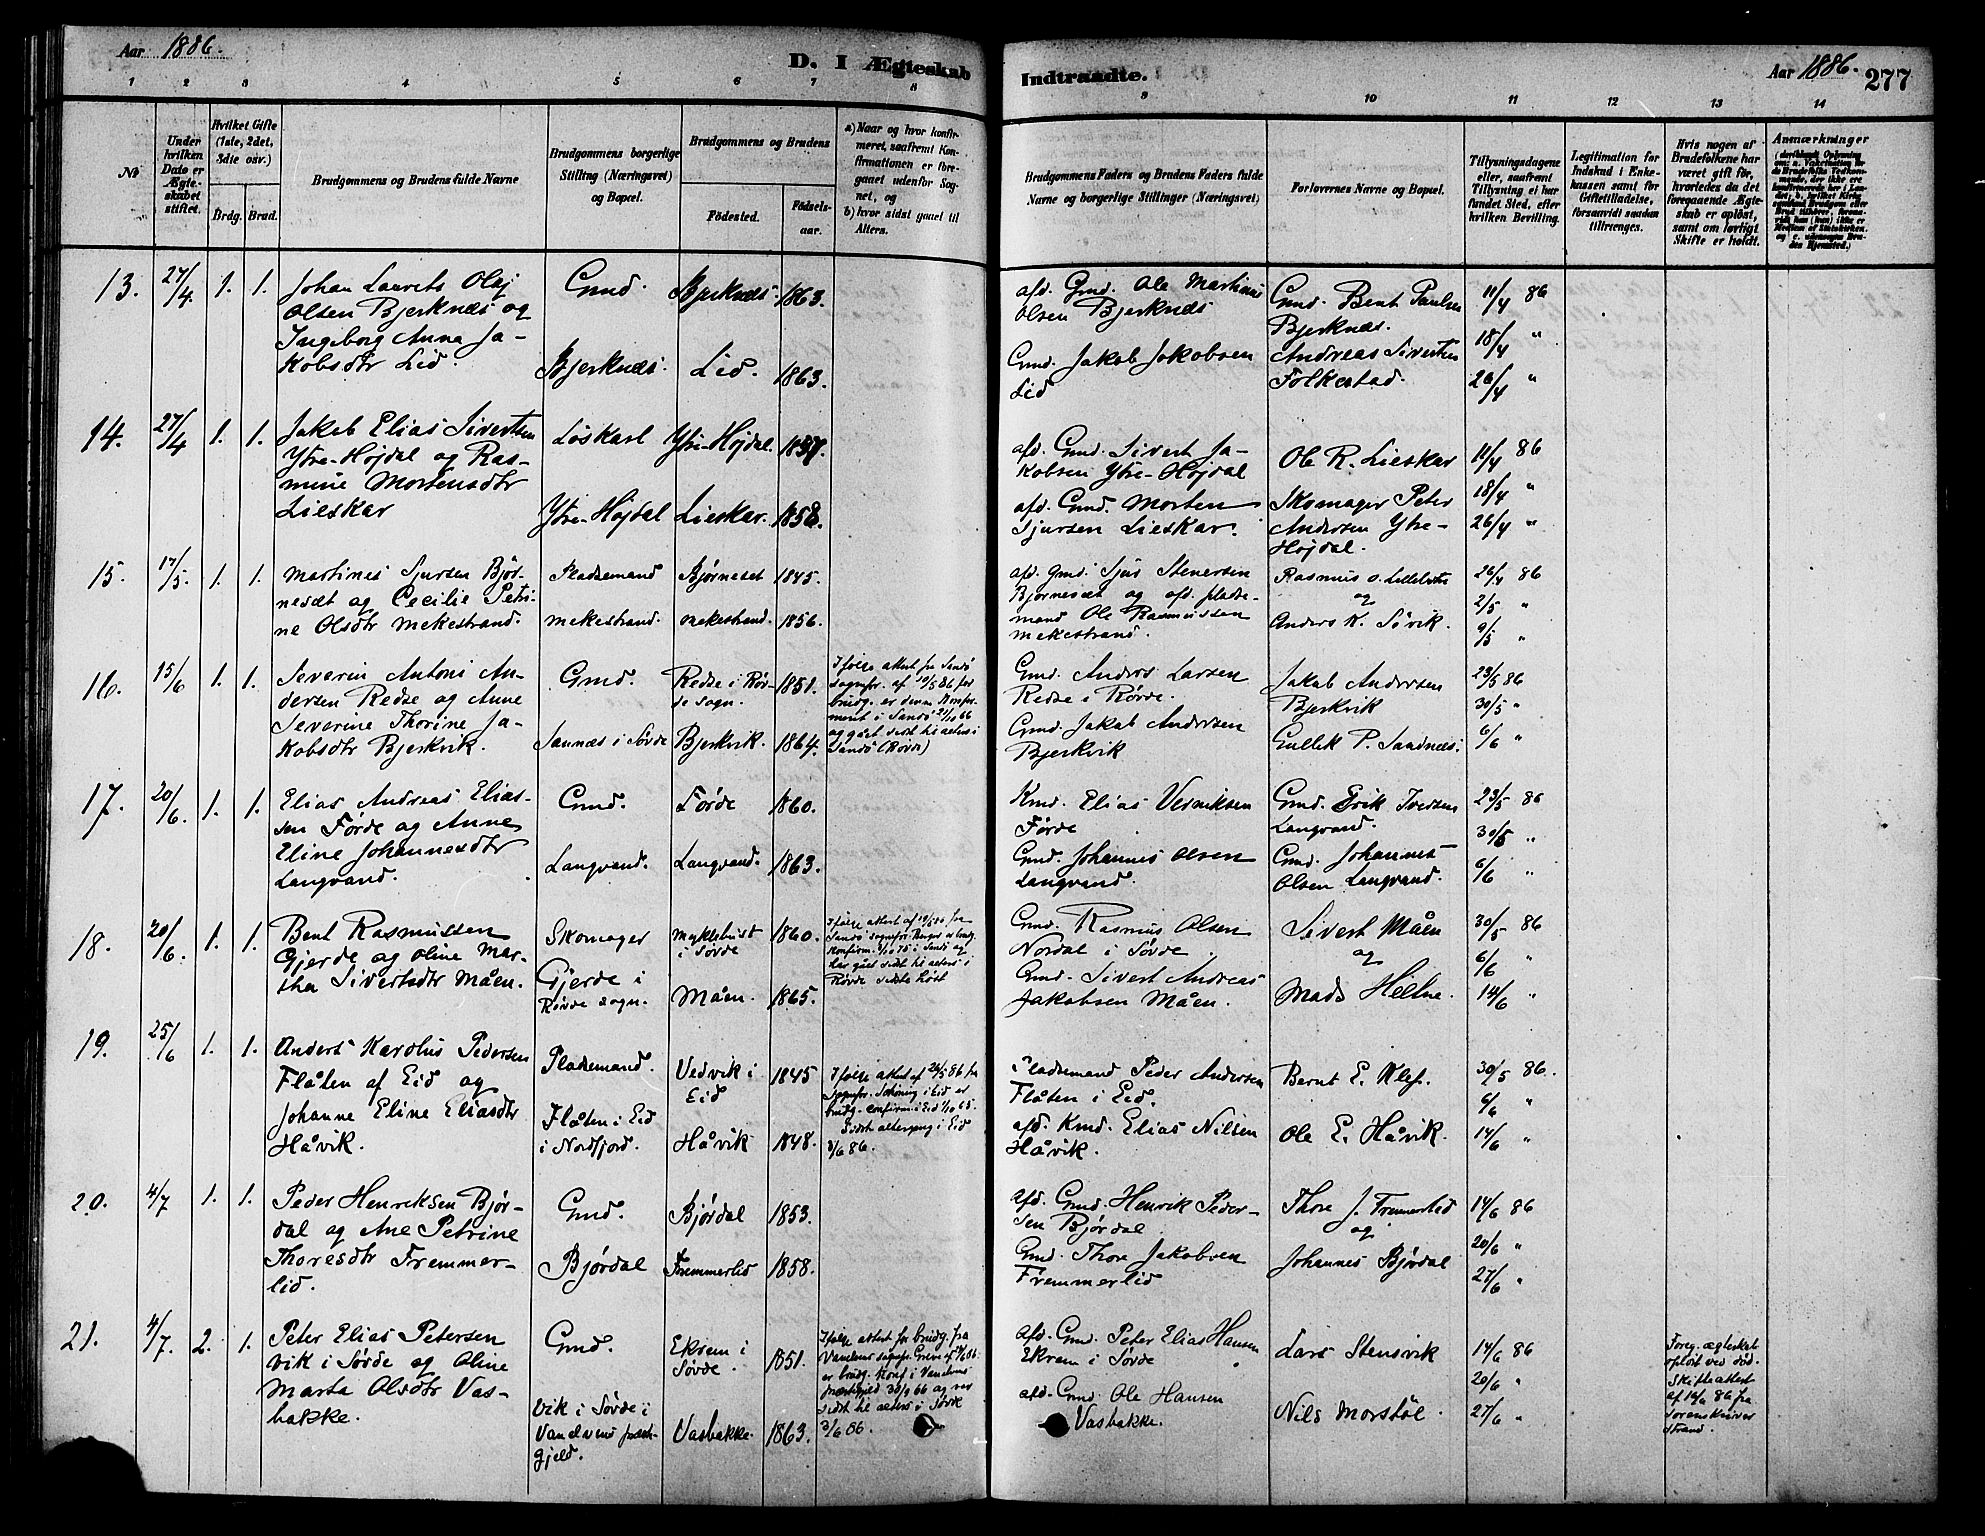 Aar 1886.
D. I Ægteskab
Indtraadte.
Aar 1886.
277
1 2 3 4 5 6 7 8 9 10 11 12 13 14
No
Under
hvilken
Dato er
Ægte-
skabet
stiftet.
Hvilket Gifte
(1ste, 2det,
3die osv.)
Brdg. Brud.
Brudgommens og Brudens fulde Navne
Brudgommens borgerlige
Stilling (Næringsvei)
og Bopæl.
Brudgommens og Brudens
Fødested.
Fødsels-
aar.
a) Naar og hvor konfir-
meret, saafremt Kon-
firmationen er fore-
gaaet udenfor Sog-
net, og
b) hvor sidst gaaet til
Alters.
Brudgommens Faders og Brudens Faders fulde
Navne og borgerlige Stillinger (Næringsvei)
Forlovernes Navne og Bopæl.
Tillysningsdagene
eller, saafremt
Tillysning ei har
fundet Sted, efter
hvilken Bevilling.
Legitimation for
Indskud i Enke-
kassen samt for
Giftetilladelse,
forsaavidt saadan
tiltrænges.
Hvis nogen af
Brudefolkene har
været gift før,
hvorledes da det
foregaaende Ægte-
skab er opløst,
samt om lovligt
Skifte er holdt.
Anmærkninger
13. 27/4. 1. 1.
Johan Laurits Olaj
Olsen Bjerknæs og
Ingeborg Anna Ja-
kobsdtr Lid.
Gmd.
Bjerknæs.
Bjerknæs 1863.
Lid. 1863.
afd. Gmd. Ole Martinus
Olsen Bjerknæs
Gmd. Jakob Jakobsen
Lid
Gmd. Bent Paulsen
Bjerknæs.
Andreas Sivertsen
Folkestad.
11/4 86
18/4 "
26/4 "
14. 27/4 1. 1.
Jakob Elias Sivertsen
Ytre-Højdal og Ras-
mine Mortensdtr
Lieskar
Løskarl
Ytre-Højdal
Ytre-Højdal. 1837.
Lieskar. 1858.
afd. Gmd. Sivert Ja-
kobsen Ytre-Højdal
afd. Gmd. Morten
Sjursen Lieskar.
Ole R. Lieskar
Skomager Peter
Andersen Ytre-
Højdal.
11/4 86
18/4 "
26/4 "
15. 17/5. 1. 1.
Martines Sjursen Bjør-
nesæt og Cecilie Petri-
ne Olsdtr Mekestrand.
Pladsemand
Mekestrand.
Bjørneset 1845.
Mekestrand. 1856.
afd. Gmd. Sjur Stenersen
Bjørnesæt og afd. plads-
mand Ole Rasmussen
Mekestrand.
Rasmus O. Lillebø
og
Anders K. Søvik.
26/4 86
2/5 "
9/5 "
16. 15/6 1. 1.
Severin Antoni An-
dersen Redse og Anne
Severine Thorine Ja-
kobsdtr Bjerkvik.
Gmd.
Sannæs i Sørde
Redse i Røv-
de sogn. 1851.
Bjerkvik. 1864.
Ifølge attest fra Sandø
sognepr. af 19/5 86 for
brudg. er denne konfir-
meret i Sandø 21/10 66
og gået sidst til alters i
Sandø (Røvde)
Gmd. Anders Larsen
Redse i Rørde.
Gmd. Jakob Andersen
Bjerkvik
Jakob Andersen
Bjerkvik
Gullik P. Sandnæs.
23/5 86
30/5 "
6/6 "
17. 20/6. 1. 1.
Elias Andreas Elias-
sen Førde og Anne
Eline Johannesdtr
Langvand.
Gmd.
Langvand.
Førde 1860.
Langvand. 1863.
Kmd. Elias Verniksen
Førde
Gmd. Johannes Olsen
Langvand.
Gmd. Erik Iversen
Langvand.
Gmd. Johannes
Olsen Langvand.
23/5 86
30/5 "
6/6 "
18. 20/6. 1. 1.
Bent Rasmussen
Gjerde og Oline Mar-
tha Sivertsdtr Måen.
Skomager
Gjerde i
Rövde sogn.
Myklebust
i Sørde 1860.
Måen. 1865.
Gmd. Rasmus Olsen
Nordal i Sørde
Gmd. Sivert Andreas
Jakobsen Måen.
Sivert Måen
og
Mads Heltne.
30/5 86
6/6 "
14/6 "
19. 25/6 1. 1.
Anders Karolus Pedersen
Flåten af Eid og
Johanne Eline Eliasdtr
Håvik.
Pladsemand.
Flåten i Eid
i Nordfjord.
Vedvik i
Eid 1845
Håvik 1848.
Ifølge attest af 24/5 86 fra
Sognepr. Søhning i Eid er
brudg. confirm i Eid 1/10 65.
Sidst altergang i Eid
3/6 86.
Pladsemand Peder Andersen
Flåten i Eid.
afd. Kmd. Elias Nilsen
Håvik.
Bernt E. Klef.
Ole E. Håvik.
30/5 86.
6/6 "
14/6 "
20. 4/7 1. 1.
Peder Henriksen Bjør-
dal og Ane Petrine
Thoresdtr Fremmer-
lid.
Gmd.
Bjørdal
Bjørdal 1853.
Fremmerlid 1858.
afd. Gmd. Henrik Peder-
sen Bjørdal
Gmd. Thore Jakobsen
Fremmerlid
Thore J. Fremmerlid
og
Johannes Bjørdal
14/6 86
20/6 "
27/6 "
21. 4/7. 2. 1.
Peter Elias Petersen
Vik i Sørde og Oline
Marta Olsdtr Vas-
bakke.
Gmd.
Vik i Sørde i
Vanelvens præste-
gjeld.
Ekrem i
Sørde 1851.
Vasbakke. 1863.
afd. Gmd. Peter Elias Hansen
Ekrem i Sørde
afd. Gmd Ole Hansen
Vasbakke.
Lars Stensvik
Nils Morstøl.
14/6 86
20/6 "
27/6 "
Foreg. ægteskab
opløst ved død.
Skifteattest
af 12/6 86 fra
Sorenskriver
Strand.